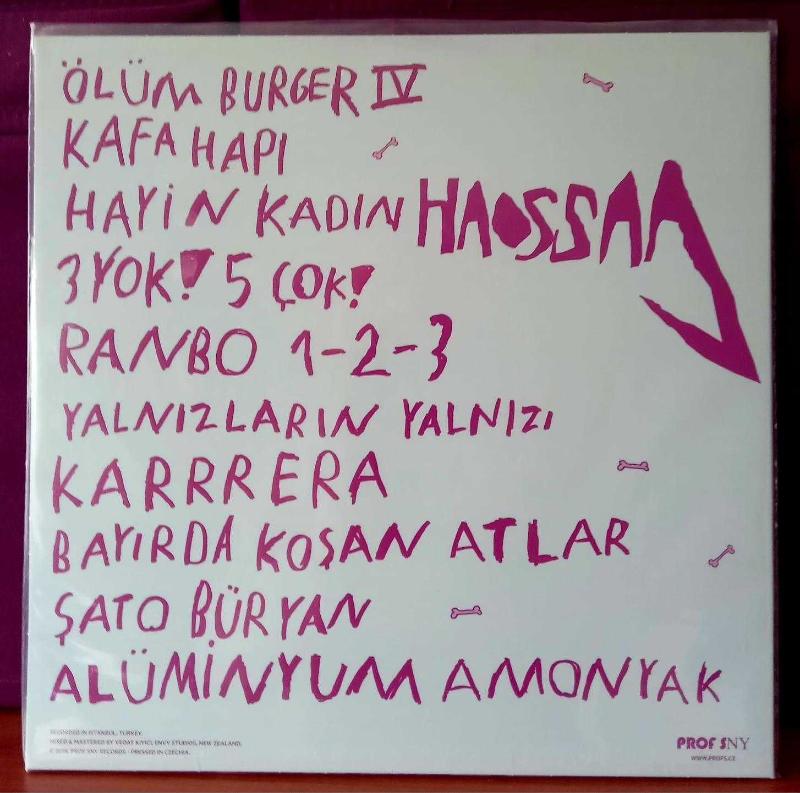 ÖLÜM BURGER IV
KAFA HAPI
HAYİN KADIN
HAOSSAA
3 YOK! 5 ÇOK!
RANBO 1-2-3
YALNIZLARIN YALNIZI
KARRRERA
BAYIRDA KOŞAN ATLAR
ŞATO BÜRYAN
ALÜMİNYUM AMONYAK
RECORDED IN ISTANBUL, TURKEY.
MIXED & MASTERED BY VEDAT KIYICI, ENVY STUDIOS, NEW ZEALAND.
PROF SNY RECORDS - PRESSED IN CZECHIA.
PROF SNY
WWW.PROFS.CZ